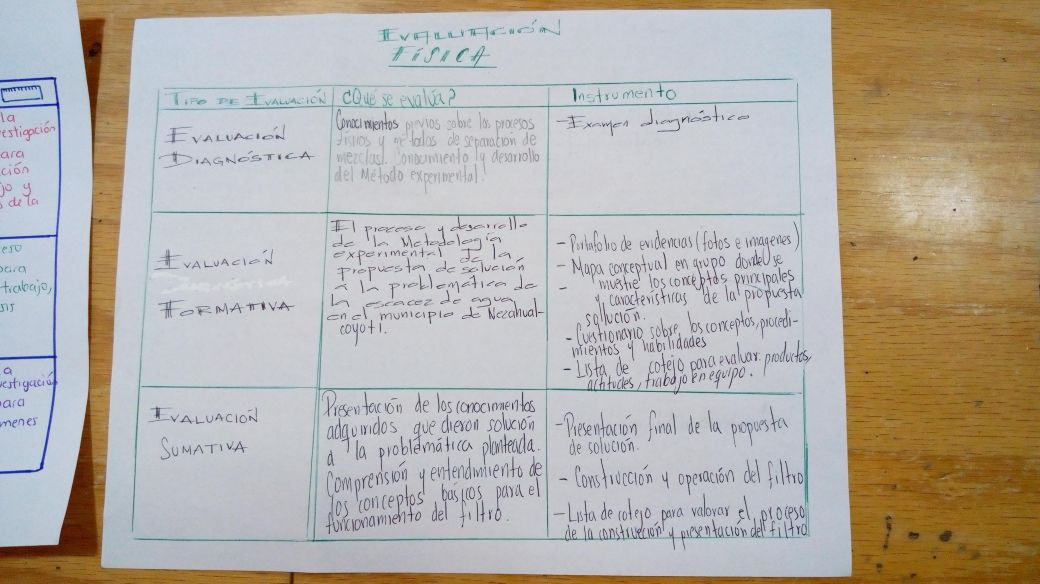 EVALUACIÓN
FÍSICA
TIPO DE EVALUACIÓN
¿Qué se evalúa?
Instrumento
EVALUACIÓN
DIAGNÓSTICA
Conocimientos previos sobre los procesos
físicos y métodos de separación de
mezclas. Conocimiento y desarrollo
del Método experimental.
- Examen diagnóstico
EVALUACIÓN
FORMATIVA
El proceso y desarrollo
de la Metodología
experimental de la
propuesta de solución
a la problemática de
la escacez de agua
en el municipio de Nezahual-
coyotl.
- Portafolio de evidencias (fotos e imagenes)
- Mapa conceptual en grupo donde se
- muestre los conceptos principales
y características de la propuesta
sollución.
- Cuestionario sobre los conceptos, procedi-
mientos y habilidades
- Lista de cotejo para evaluar: productos,
actitudes, trabajo en equipo.
EVALUACIÓN
SUMATIVA
Presentación de los conocimientos
adquiridos que dieron solución
a la problemática planteada.
Comprensión y entendimiento de
los conceptos básicos para el
funcionamiento del filtro.
- Presentación final de la propuesta
de solución.
- Construcción y operación del filtro
- Lista de cotejo para valorar el proceso
de la construcción y presentación del filtro
la
estigación
ara
ción
jo y
s de la
eso
para
trabajo,
sis
a
vestigació
para
menes